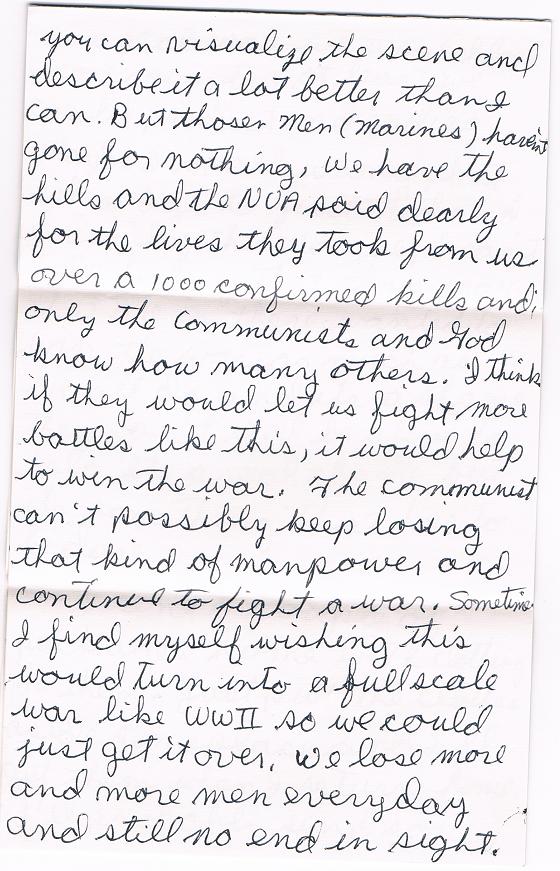 you can visualize the scene and
describe it a lot better than I
can. But thoser Men (Marines) haven't
gone for nothing, we have the
hills and the NVA paid dearly
for the lives they took from us
over a 1000 confirmed kills and
only the communists and God
know how many others. I think
if they would let us fight more
battles like this, it would help
to win the war. The communist
can't possibly keep losing
that kind of manpower and
continue to fight a war. Sometime
I find myself wishing this
would turn into a full scale
war like WWII so we could
just get it over. We lose more
and more men everyday
and still no end in sight.